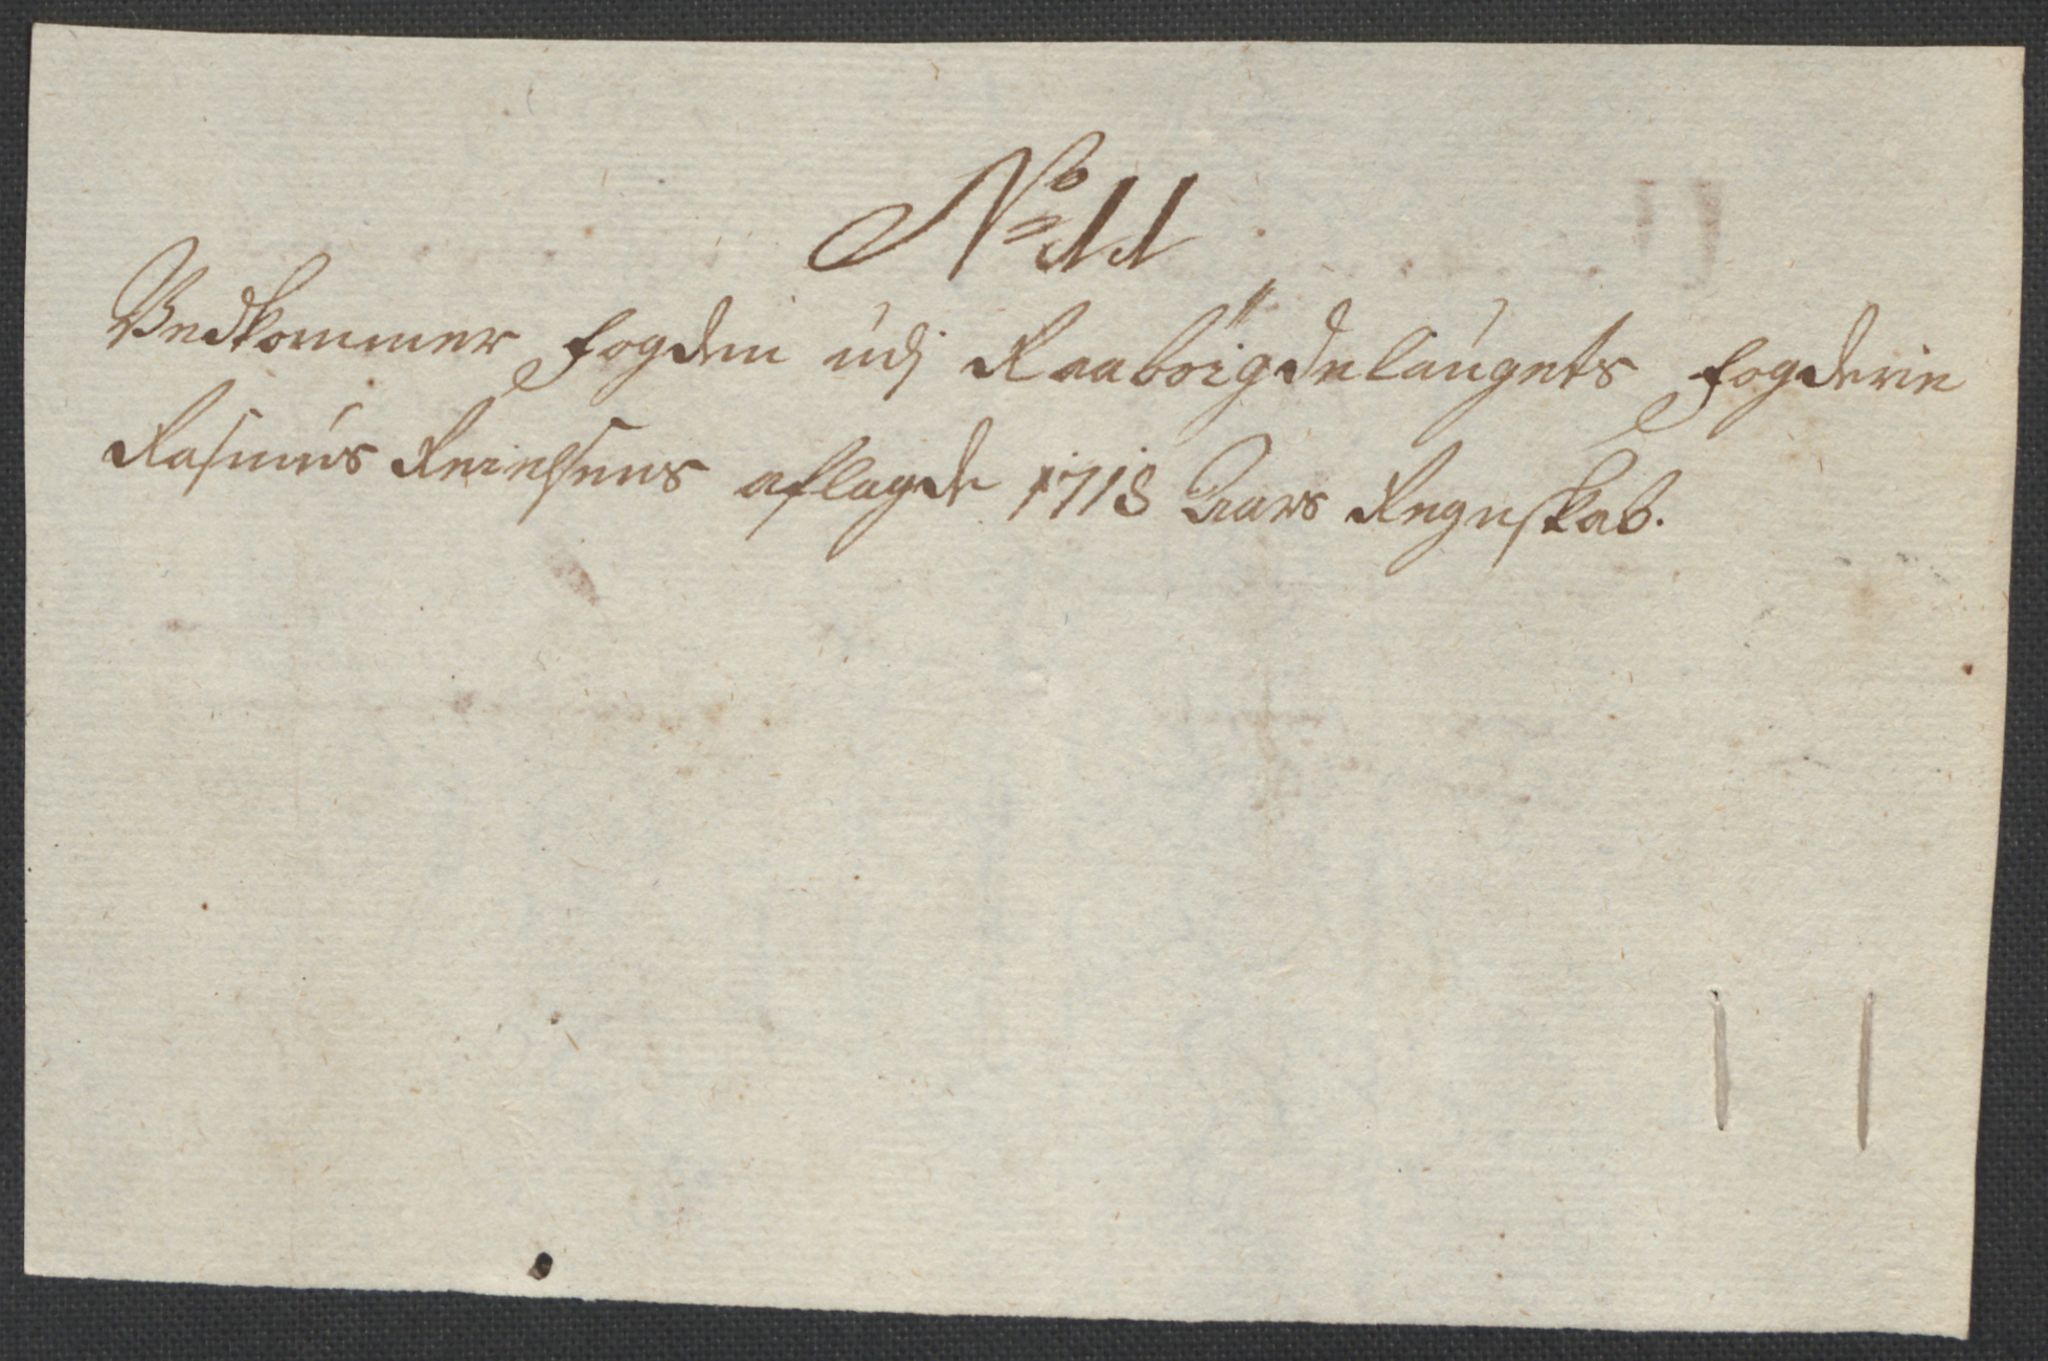 No 11
Vedkommer fogden udj Raaböigdelaugets fogderie
Rasmus Reiersens aflagde 1718 Aars Regnskab.